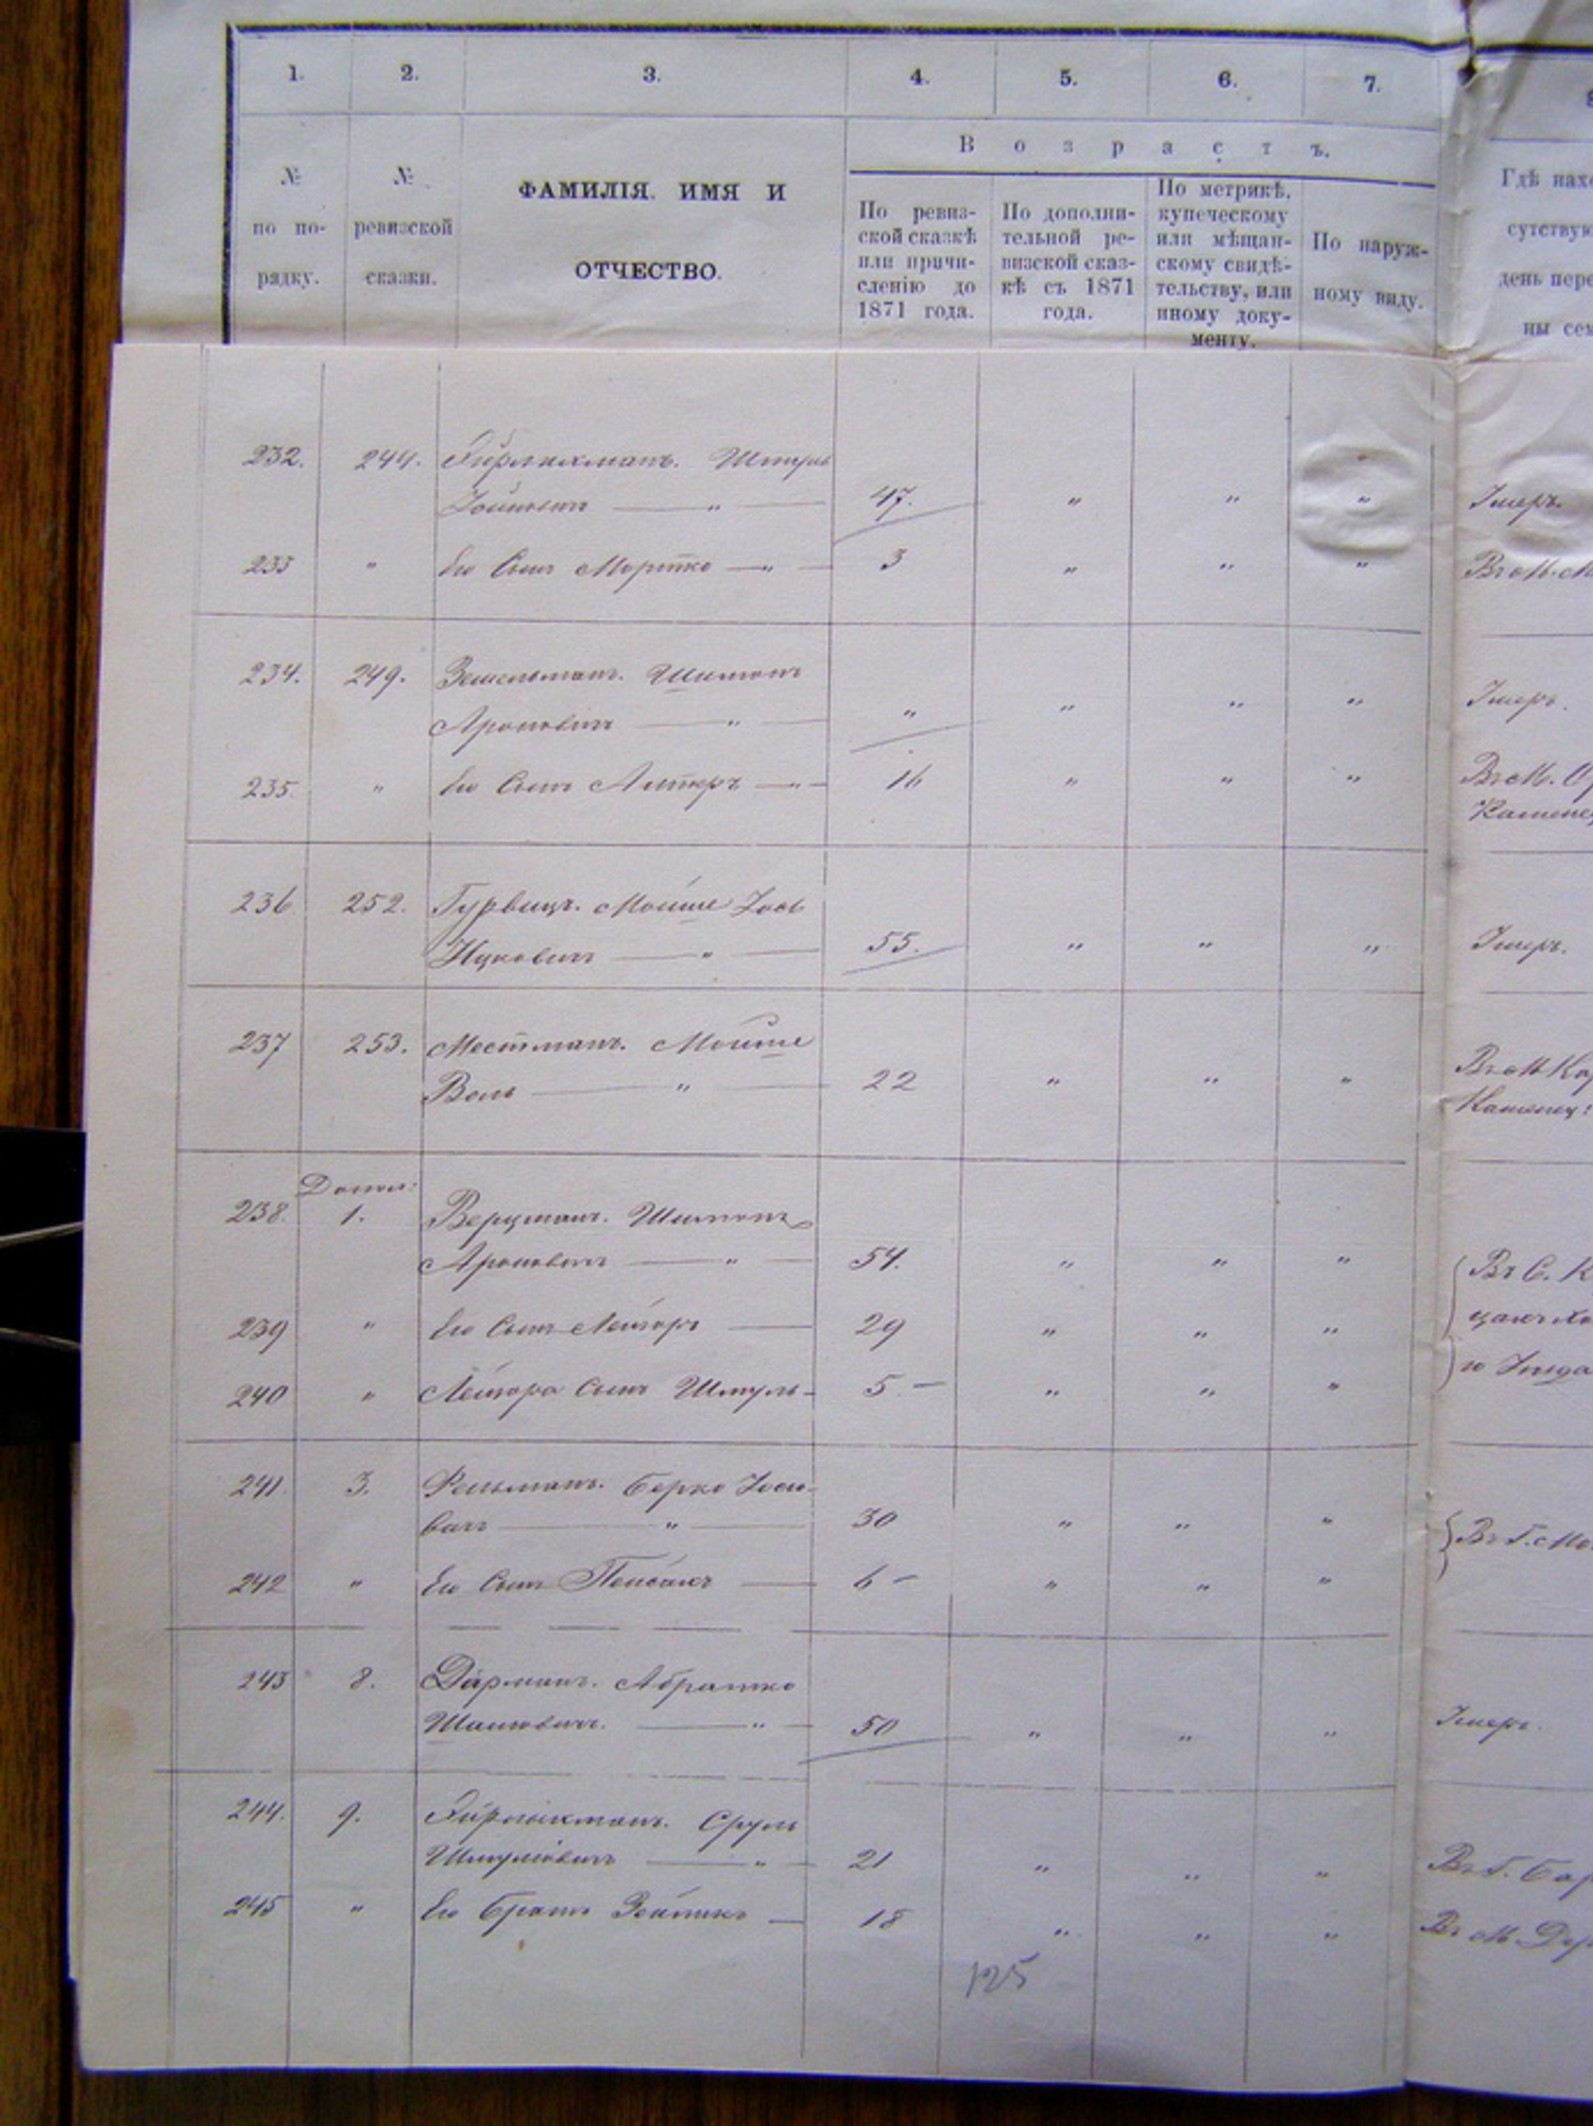 1. 2. 3. 4. 5. 6. 7.
В о з р а с т ъ.
№ по по- рядку.
№ ревизской сказки.
ФАМИЛІЯ, ИМЯ И
ОТЧЕСТВО.
По ревиз-
ской сказкѣ
или причи-
сленію до
1871 года.
По дополни-
тельной ре-
визской сказ-
кѣ съ 1871
года.
По метрикѣ,
купеческому
или мѣщан-
скому свидѣ-
тельству, или
иному доку-
менту.
По наруж-
ному виду.
Гдѣ нахо
сутствую
день пере
ны сем
232. 244. Шмуль
47. " " " Умеръ.
233 " Его Сынъ Мортко — " — 3 " " "
234. 249. Зешельманъ. Шимонъ
Ароновичъ — " — " " " " Умеръ.
235. " Его Сынъ Алтеръ — " — 16 " " " Въ М.
Каменец
236 252. Гурвицъ. Мойше Іось
Ицковичъ — " — 55. " " " Умеръ.
237 253. Местманъ. Мойше
Воль — " — 22 " " " Въ М. Ка
Каменец:
Допол:
238. 1. Верцманъ. Шимонъ
Ароновичъ — " — 54. " " " Въ С. К
239 " Его Сынъ Лейзоръ — 29 " " "
240 " Лейзора Сынъ Шмуль - 5 — " " "
241. 3. Берко Іосіо-
вичъ — " — 30 " " " Въ Г. Мо
242 " Его Сынъ Пейсахъ — 6 — " " "
243 8. Дарманъ. Абрамко
— " — 50 " " " Умеръ.
244. 9. Сруль
Шмулiовичъ — " — 21 " " " Въ Г. Бар
245 " Его Братъ Зейликъ — 18 " " " Въ М.
125